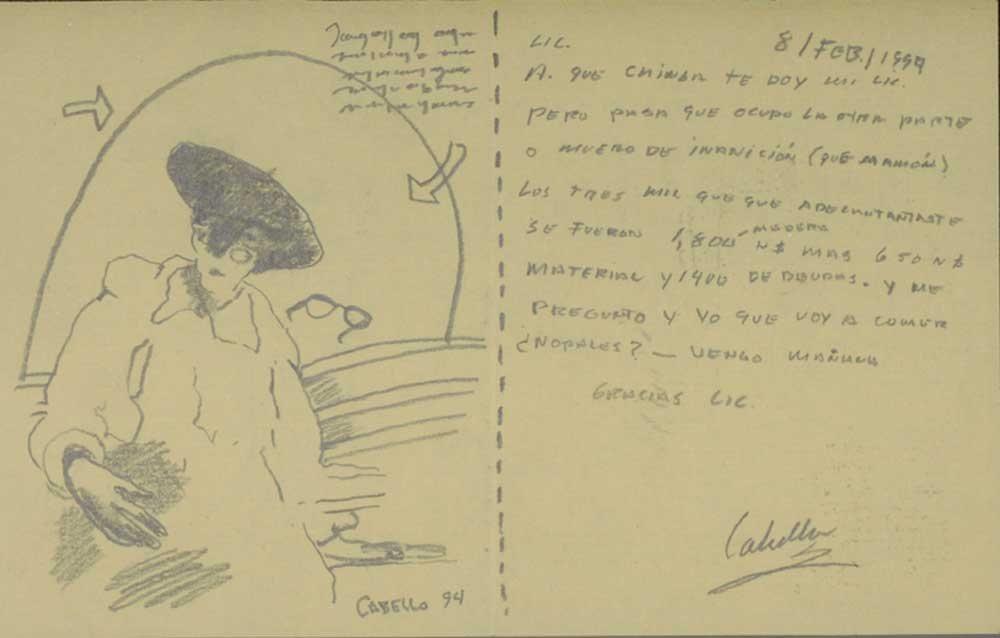 LIC.
8/FEB./1994
A. QUE CHINGA TE DOY MI LIC.
PERO PASA QUE OCUPO LA OTRA PARTE
O MUERO DE INANICIÓN (QUE MAMÓN)
LOS TRES MIL QUE QUE ADELANTANTASTE
SE FUERON 1,800 MADERA N$ MAS 650 N$
MATERIAL Y 1400 DE DEUDAS. Y ME
PREGUNTO Y YO QUE VOY A COMER
¿NOPALES? — VENGO MAÑANA
GRACIAS LIC.
Cabello
CABELLO 94